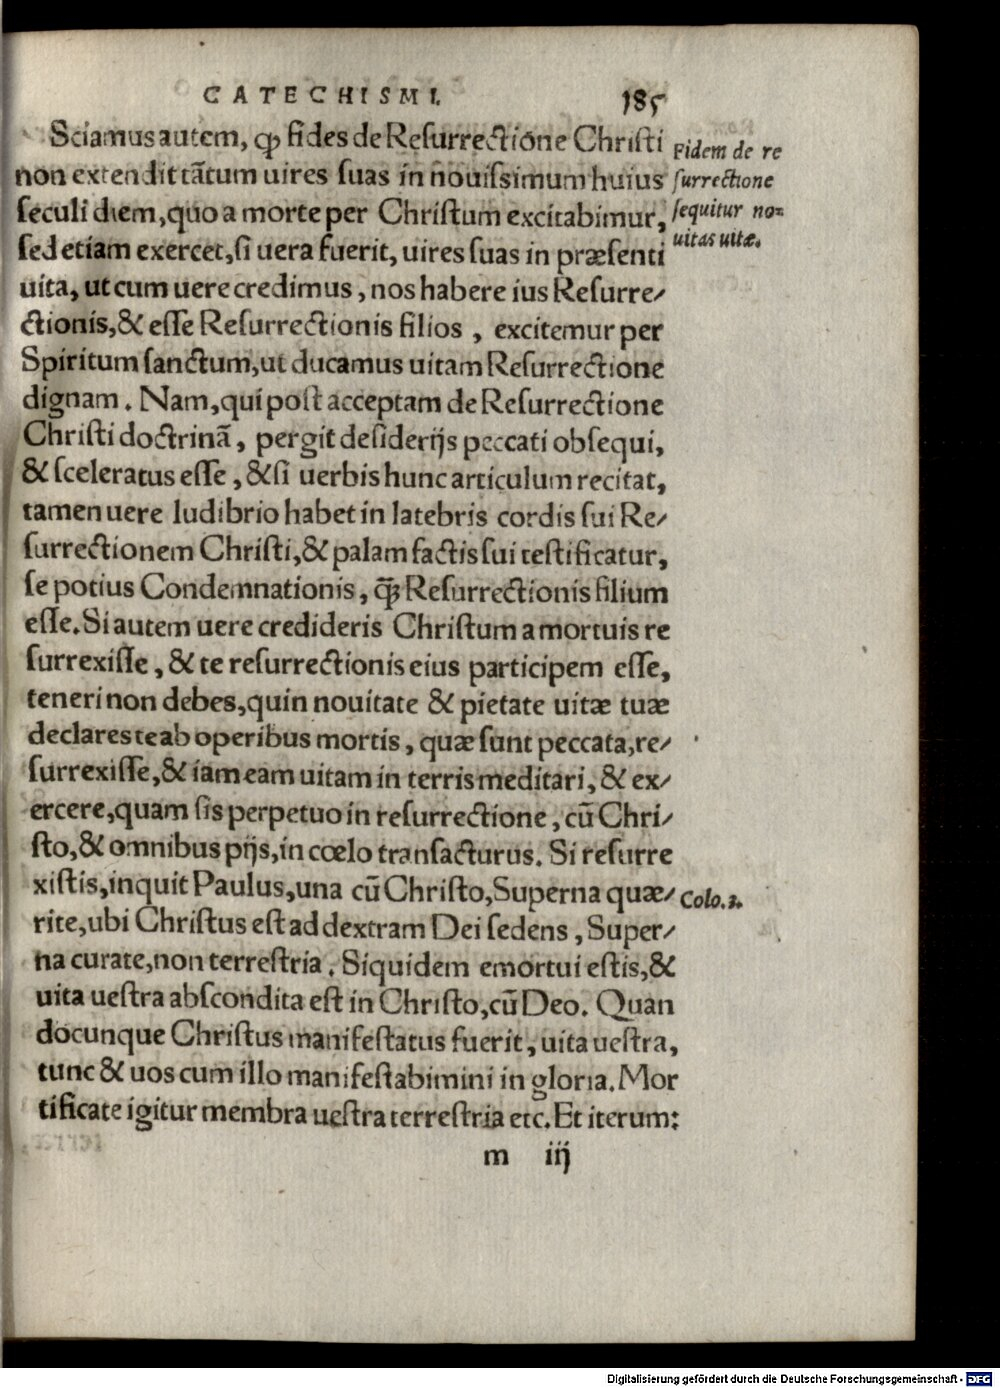 CATECHISMI. 185
Sciamus autem, ꝙ fides de Resurrectione Christi
non extendit tãtum uires suas in nouissimum huius
seculi diem, quo a morte per Christum excitabimur,
sed etiam exercet, si uera fuerit, uires suas in præsenti
uita, ut cum uere credimus, nos habere ius Resurre/
ctionis, & esse Resurrectionis filios, excitemur per
Spiritum sanctum, ut ducamus uitam Resurrectione
dignam. Nam, qui post acceptam de Resurrectione
Christi doctrinã, pergit desiderijs peccati obsequi,
& sceleratus esse, & si uerbis hunc articulum recitat,
tamen uere ludibrio habet in latebris cordis sui Re/
surrectionem Christi, & palam factis sui testificatur,
se potius Condemnationis, ꝙ̃ Resurrectionis filium
esse. Si autem uere credideris Christum a mortuis re
surrexisse, & te resurrectionis eius participem esse,
teneri non debes, quin nouitate & pietate uitæ tuæ
declares te ab operibus mortis, quæ sunt peccata, re/
surrexisse, & iam eam uitam in terris meditari, & ex/
ercere, quam sis perpetuo in resurrectione, cũ Chri/
sto, & omnibus pijs, in cœlo transacturus. Si resurre
xistis, inquit Paulus, una cũ Christo, Superna quæ/
rite, ubi Christus est ad dextram Dei sedens, Super/
na curate, non terrestria. Siquidem emortui estis, &
uita uestra abscondita est in Christo, cũ Deo. Quan
docunque Christus manifestatus fuerit, uita uestra,
tunc & uos cum illo manifestabimini in gloria. Mor
tificate igitur membra uestra terrestria etc. Et iterum:
m iij
Fidem de re
surrectione
sequitur no=
uitas uitæ.
Colo. 3.
Digitalisierung gefördert durch die Deutsche Forschungsgemeinschaft - DFG